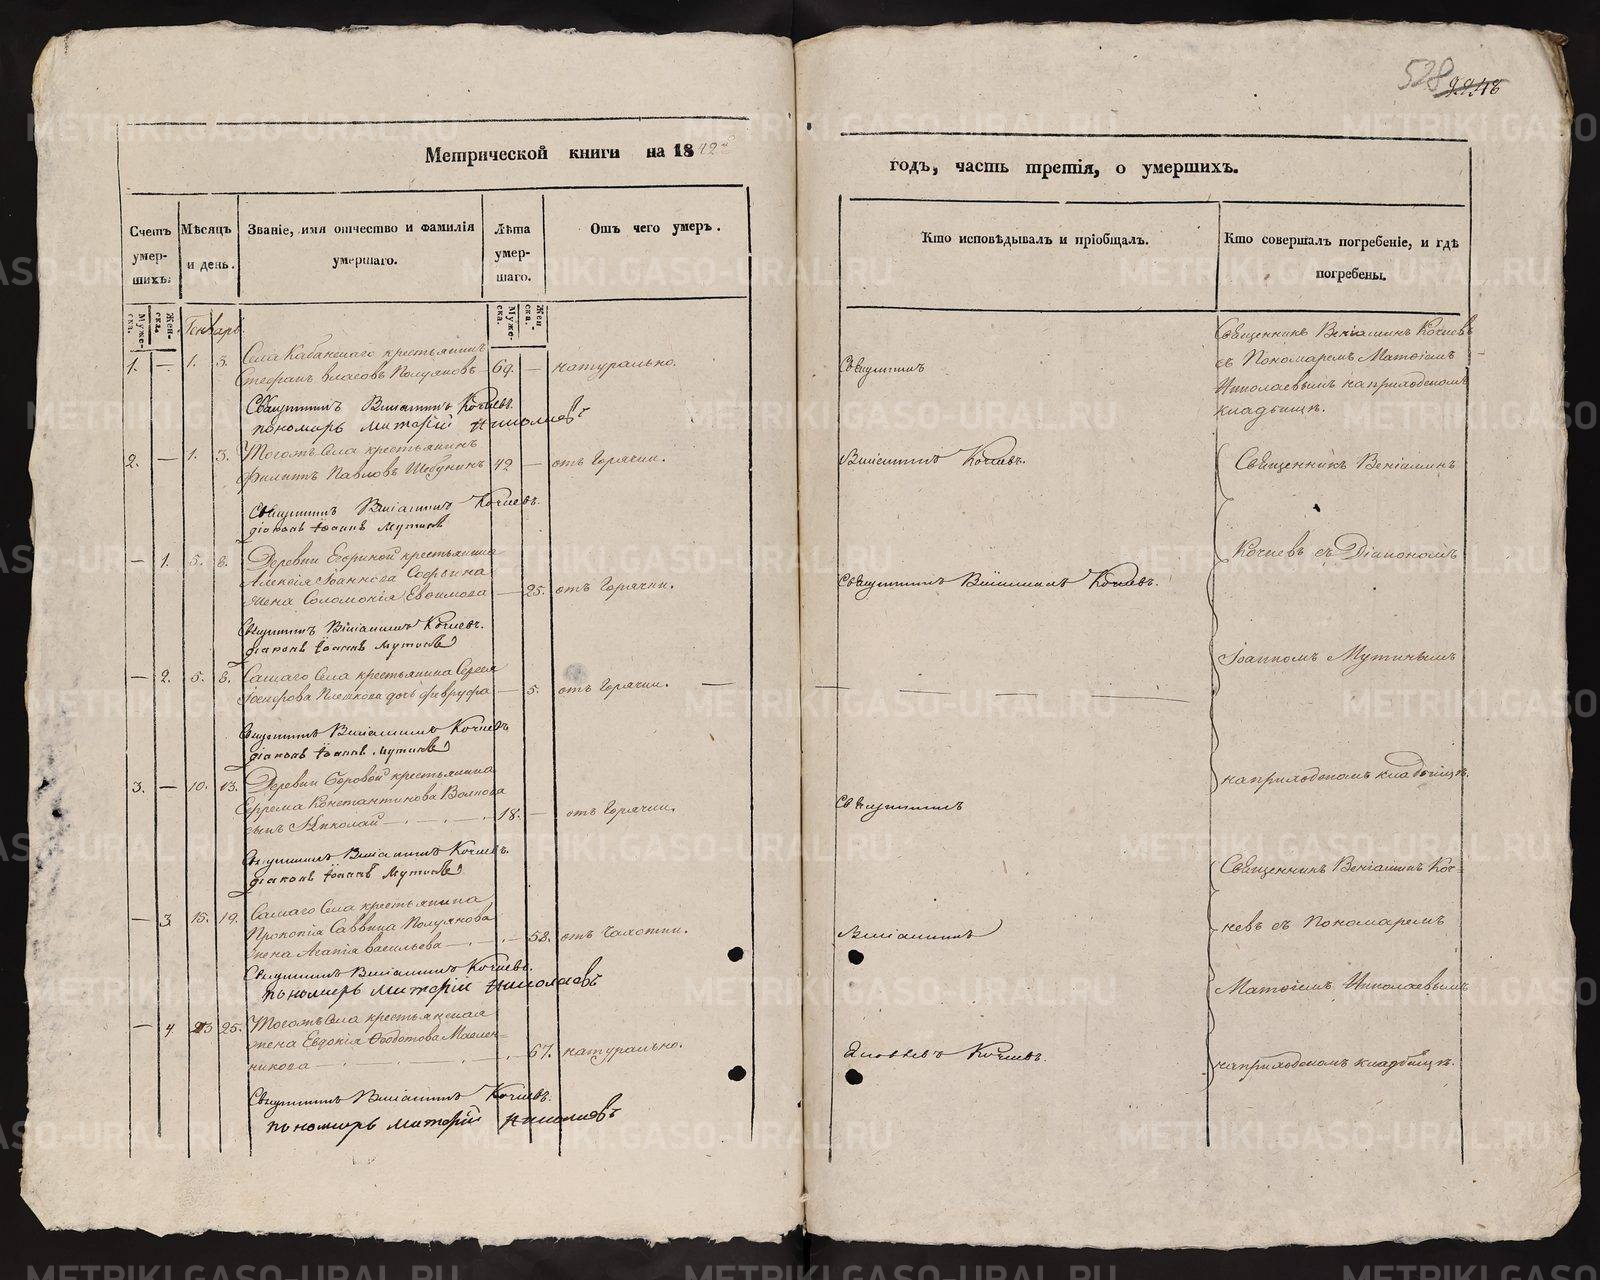 528
Метрической книги на 1842й
годъ, часть третія, о умершихъ.
Счетъ умер-
шихъ.
Мѣсяцъ
и день.
Званіе, имя отчество и фамилія
умершаго.
Лѣта
умер-
шаго.
Отъ чего умеръ.
Кто исповѣдывалъ и пріобщалъ.
Кто совершалъ погребеніе, и гдѣ
погребены.
Муже-
ска.
Жен-
ска.
Муже-
ска.
Жен-
ска.
Генварь
Села Кабанскаго крестьянинъ
1. — 1. 3. Стефанъ Власовъ Полуяновъ 69. — натурально.
Священникъ
Священникъ Веніаминъ Кочневъ
съ Пономаремъ Матѳіемъ
Николаевымъ на приходскомъ
кладбищѣ.
Священникъ Веніаминъ Кочневъ.
пономарь Матфій Николаевъ
Тогожъ Села крестьянинъ
2. — 1. 3. Филиппъ Павловъ Шебунинъ 42 — отъ Горячки.
Веніаминъ Кочневъ.
Священникъ Веніаминъ
Священникъ Веніаминъ Кочневъ.
діаконъ Іоаннъ Мутинъ
Кочневъ съ Діакономъ
— 1. 5. 8. Деревни крестьянина
Алексія Іоаннова
жена Соломонія Евѳимова — 25. отъ Горячки.
Священникъ Веніаминъ Кочневъ.
Священникъ Веніаминъ Кочневъ.
діаконъ Іоаннъ Мутинъ
Іоанномъ Мутинымъ
— 2. 5. 8. Самаго Села крестьянина Сергія
дочь Февруфа — 5. отъ Горячки. —
Священникъ Веніаминъ Кочневъ
діаконъ Іоаннъ Мутинъ
на приходскомъ кладбищѣ.
3. — 10. 13. Деревни Боровой крестьянина
Ефрема Константинова Волкова
сынъ Николай — 18. — отъ Горячки.
Священникъ
Священникъ Веніаминъ Кочневъ.
діаконъ Іоаннъ Мутинъ
Священникъ Веніаминъ Коч-
— 3 15. 19. Самаго Села крестьянина
Прокопія Саввина Полуянова
жена Агапія Васильева — 58. отъ Чахотки.
Веніаминъ
невъ съ Пономаремъ
Священникъ Веніаминъ Кочневъ.
пономарь Матфій Николаевъ
Матѳіемъ Николаевымъ
— 4 23 25. Тогожъ Села крестьянская
жена Евдокія Ѳеодотова Маслен-
никова — 67. натурально.
Кочневъ.
на приходскомъ кладбищѣ.
Священникъ Веніаминъ Кочневъ.
пономарь Матфій Николаевъ
METRIKI.GASO-URAL.RU